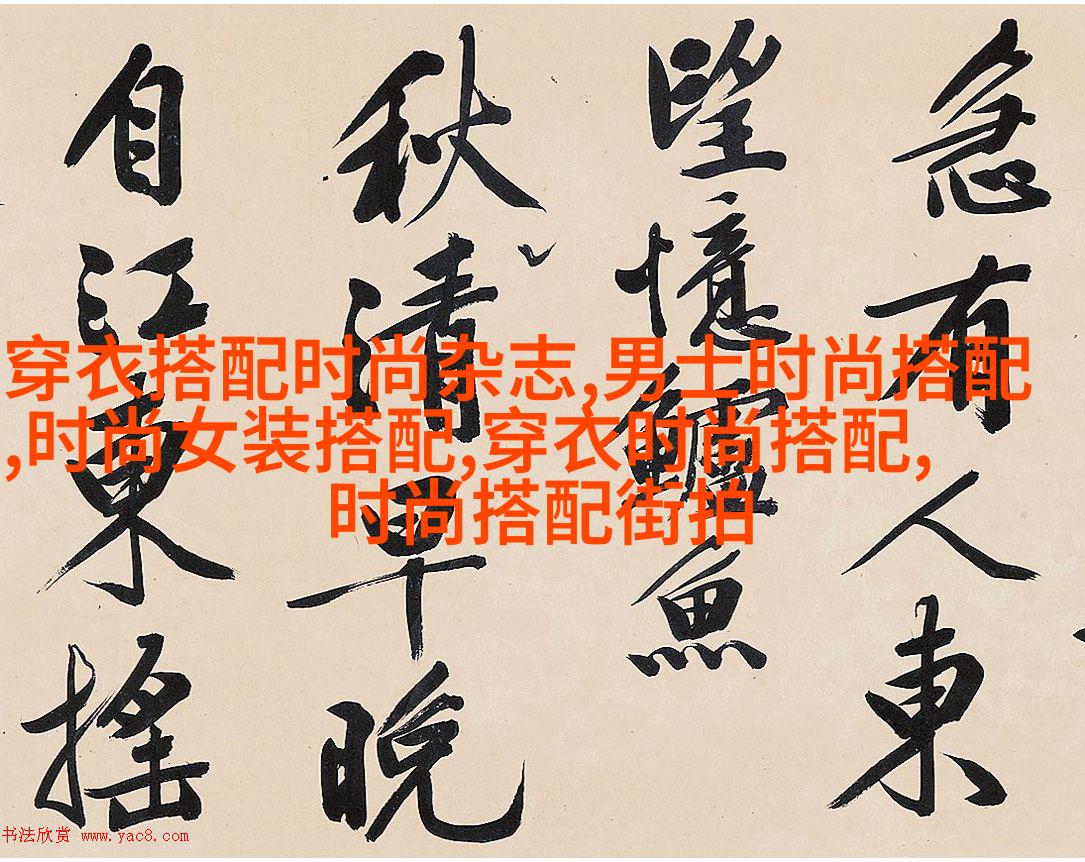 急有人東
望憶鱸魚
秋清早晚
自江東搖
穿衣搭配时尚杂志,男士时尚搭配
,时尚女装搭配,穿衣时尚搭配,
时尚搭配街拍
书法欣赏 www.yac8.com